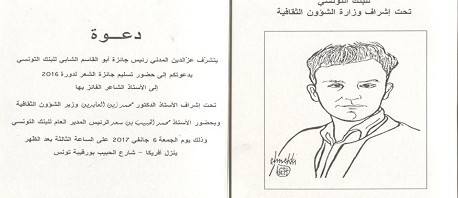 دعـــوة
يتشرف عزالدين المدني رئيس جائزة أبو القاسم الشابي للبنك التونسي
بدعوتكم إلى حضور تسليم جائزة الشعر لدورة 2016
إلى الأستاذ الشاعر الفائز بها
تحت إشراف الأستاذ الدكتور محمد زين العابدين وزير الشؤون الثقافية
وبحضور الأستاذ محمد الحبيب بن سعد الرئيس المدير العام للبنك التونسي
وذلك يوم الجمعة 6 جانفي 2017 على الساعة الثالثة بعد الظهر
بنزل أفريكا – شارع الحبيب بورقيبة تونس
للبنك التونسي
تحت إشراف وزارة الشؤون الثقافية
elmekki